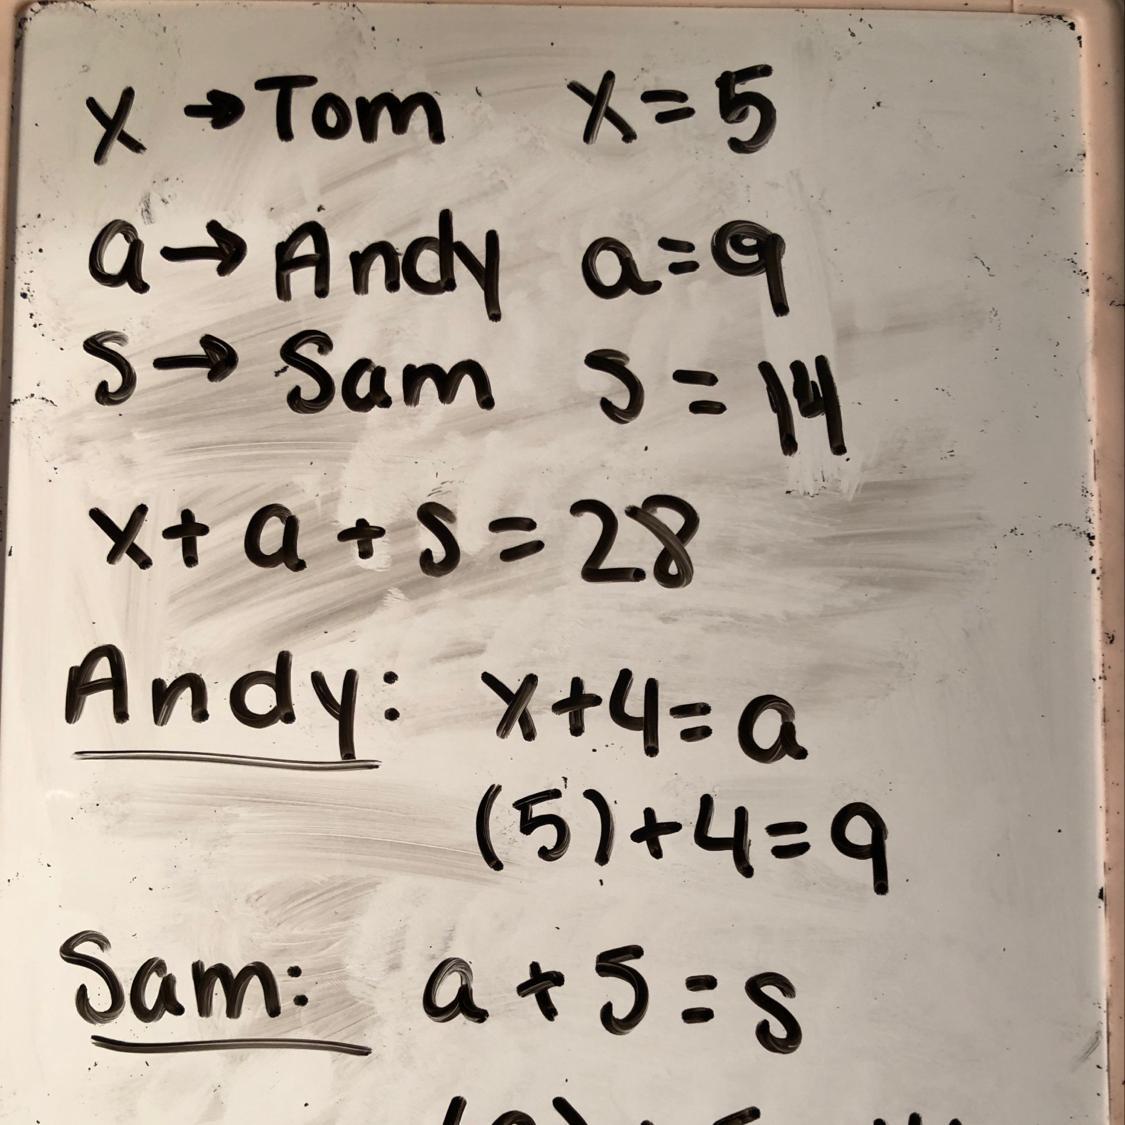 x → Tom x = 5
a → Andy a = 9
s → Sam s = 14
x + a + s = 28
Andy: x + 4 = a
(5) + 4 = 9
Sam: a + 5 = s